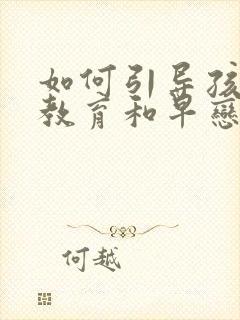 如何引导孩
教育和早戀
何越